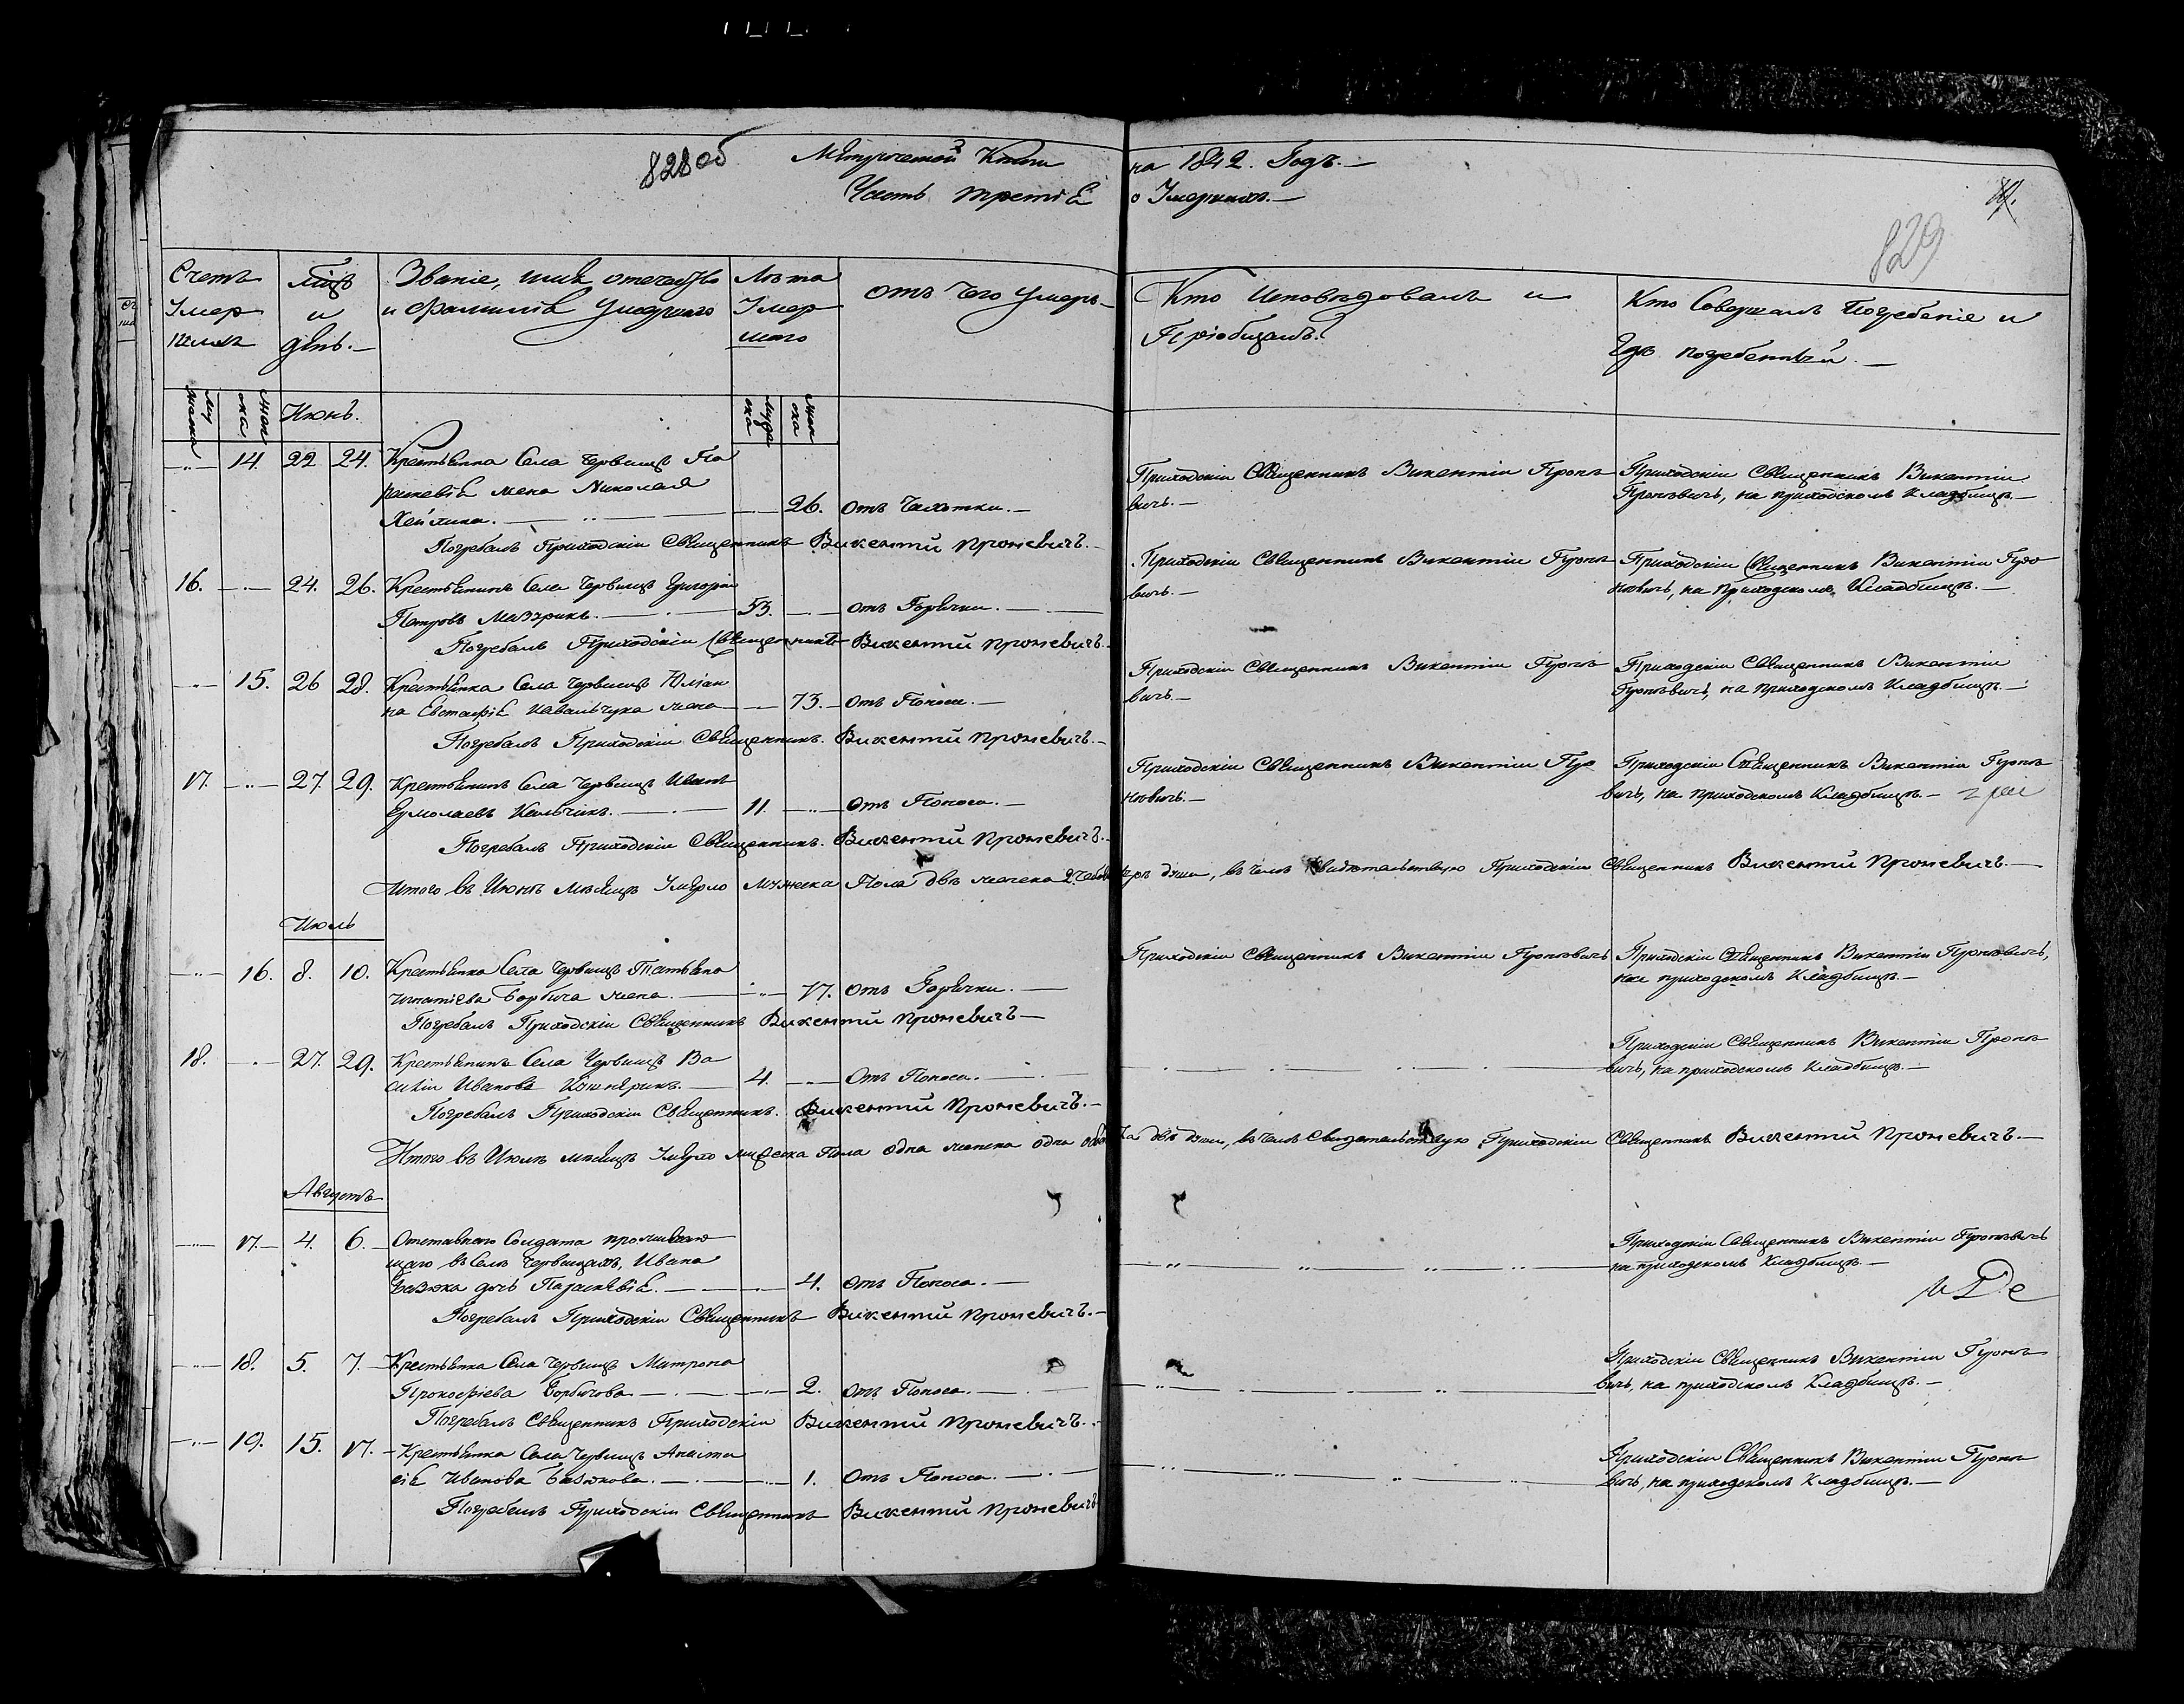 828об
Метрической Книги на 1842. Годъ.—
Часть третія о Умершихъ.—
829
Счетъ Умер шихъ
Мцъ и день.—
Званіе, имя отечество и фамилія Умершаго
Лѣта Умер шаго
отъ чего умеръ
Кто Исповѣдовалъ и Пріобщалъ?
Кто Совершалъ Погребеніе и Гдѣ погребенный.—
Іюнь.
14. 22 24. Крестьянка Села Червищъ Па
раскевія жена Николая
Хейлика.— 26. отъ Чахотки.—
Приходскій Священникъ Викентій Проне
вичъ.—
Приходскій Священникъ Викентій
Проневичъ, на приходскомъ Кладбищѣ.—
Погребалъ Приходскій Священникъ Викентій Проневичъ.—
16. 24. 26. Крестьянинъ Села Червищъ Григорій
Петровъ Мазурикъ.— 53. отъ Горячки.—
Приходскій Священникъ Викентій Проне
вичъ.—
Приходскій Священникъ Викентій Про
невичъ, на Приходскомъ Кладбищѣ.—
Погребалъ Приходскій Священникъ Викентій Проневичъ.
15. 26 28. Крестьянка Села Червищъ Юліан
на Евстафія Ковальчука жена 73. отъ Поноса.—
Приходскій Священникъ Викентій Проне
вичъ.—
Приходскій Священникъ Викентій
Проневичъ, на приходскомъ Кладбищѣ.—
Погребалъ Приходскій Священникъ. Викентій Проневичъ.—
17. 27. 29. Крестьянинъ Села Червищъ Иванъ
Ермолаевъ 11. отъ Поноса.—
Приходскій Священникъ Викентій Про
невичъ.—
Приходскій Священникъ Викентій Проне
вичъ, на приходскомъ Кладбищѣ.—
Погребалъ Приходскій Священникъ. Викентій Проневичъ.—
Итого въ Июнѣ мѣсяцѣ Умерло мужеска Пола двѣ женска 2. души, въ чемъ свидѣтельствую Приходскій Священникъ Викентій Проневичъ.—
Июль
16. 8. 10. Крестьянка Села Червищъ Татьяна
Игнатіева Борбича жена.— 17. отъ Горячки.—
Приходскій Священникъ Викентій Проневичъ
Приходскій Священникъ Викентій Проневичъ,
на приходскомъ Кладбищѣ.—
Погребалъ Приходскій Священникъ Викентій Проневичъ—
18. 27. 29. Крестьянинъ Села Червищъ Ва
силій Ивановъ Кошнерикъ.— 4. Отъ Поноса.—
Приходскій Священникъ Викентій Проне
вичъ, на приходскомъ Кладбищѣ.—
Погребалъ Приходскій Священникъ. Викентій Проневичъ.—
Итого въ Июлѣ мѣсяцѣ Умерло мужеска Пола одна женска одна двѣ души, въ чемъ свидѣтельствую Приходскій Священникъ Викентій Проневичъ.—
Августъ
17. 4. 6. Отставнаго Солдата прожива
щаго въ Селѣ Червищахъ, Ивана
Базюка дочь Параскевія.— 4. отъ Поноса.—
Приходскій Священникъ Викентій Проневичъ
на приходскомъ Кладбищѣ.—
Погребалъ Приходскій Священникъ Викентій Проневичъ.—
18. 5. 7. Крестьянка Села Червищъ Матрона
Прокофіева Борбичова— 2. отъ Поноса.—
Приходскій Священникъ Викентій Проне
вичъ, на приходскомъ Кладбищѣ.—
Погребалъ Священникъ Приходскій Викентій Проневичъ.
19. 15. 17. Крестьянка Села Червищъ Анаста
сія Иванова Базюкова.— 1. отъ Поноса.—
Приходскій Священникъ Викентій Проне
вичъ, на приходскомъ Кладбищѣ.—
Погребалъ Приходскій Священникъ Викентій Проневичъ